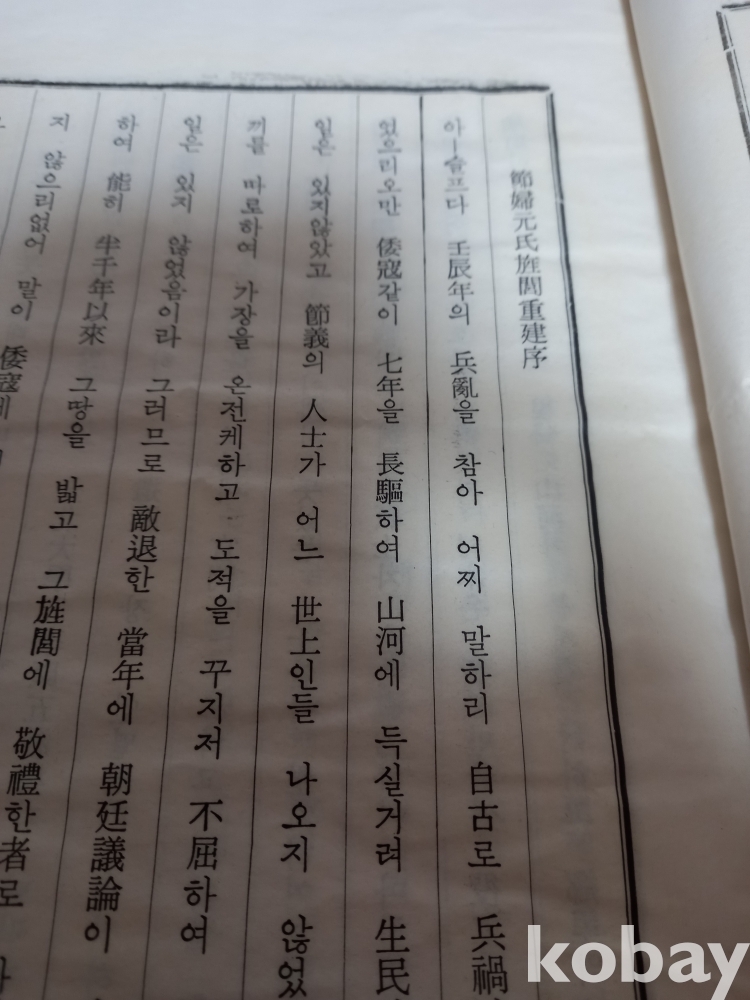 節婦元氏旌閭重建序
아ㅡ슬프다 壬辰年의 兵亂을 참아 어찌 말하리 自古로 兵禍
있으리오만 倭寇같이 七年을 長驅하여 山河에 득실거려 生民
일은 있지않았고 節義의 人士가 어느 世上인들 나오지 않았
끼를 따로하여 가장을 온전케하고 도적을 꾸지저 不屈하여
일은 있지 않었음이라 그러므로 敵退한 當年에 朝廷議論이
하여 能히 半千年以來 그땅을 밟고 그旌閭에 敬禮한者로
지 않으리없어 말이 倭寇
kobay